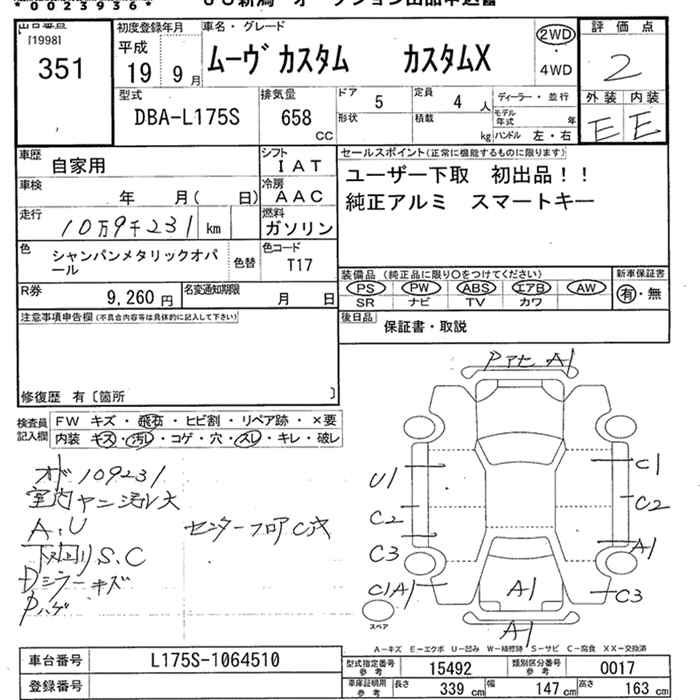 *00239361*
出品番号
[1998]
351
初度登録年月
平成
19 9月
車名・グレード
ムーヴ カスタム カスタムX
2WD
・
4WD
評価点
2
外装 内装
E E
型式
DBA-L175S
排気量
658
CC
ドア 5
定員 4人
形状
積載 kg
ディーラー・並行
モデル年式 年
ハンドル 左・右
車歴
自家用
シフト
IAT
車検
年 月( 日)
冷房
AAC
走行
10万9千231 km
燃料
ガソリン
色
シャンパンメタリックオパール
色替
色コード
T17
R券
9,260円
名変通知期限
月 日
セールスポイント(正常に機能するものに限ります)
ユーザー下取 初出品!!
純正アルミ スマートキー
装備品(純正品に限り○をつけてください)
PS PW ABS エアB AW
SR ナビ TV カワ
新車保証書
有・無
後日品
保証書・取説
注意事項申告欄(不具合内容等は具体的に記入して下さい)
修復歴 有〔箇所 〕
検査員記入欄
FW キズ・飛石・ヒビ割・リペア跡・×要
内装 キズ・汚レ・コゲ・穴・スレ・キレ・破レ
オド109231
室内ヤニ汚レ大
A,U
センターフロアC大
下回りS.C
Dミラーキズ
Pハゲ
A1
U1
C1
C2
C2
C3
A1
C1A1
A1
C3
A1
スペア
A-キズ E-エクボ U-凹み W-補修跡 S-サビ C-腐食 XX-交換済
車台番号
L175S-1064510
登録番号
型式指定番号
参考
15492
類別区分番号
参考
0017
車庫証明用
参考
長さ 339 cm
幅 147 cm
高さ 163 cm